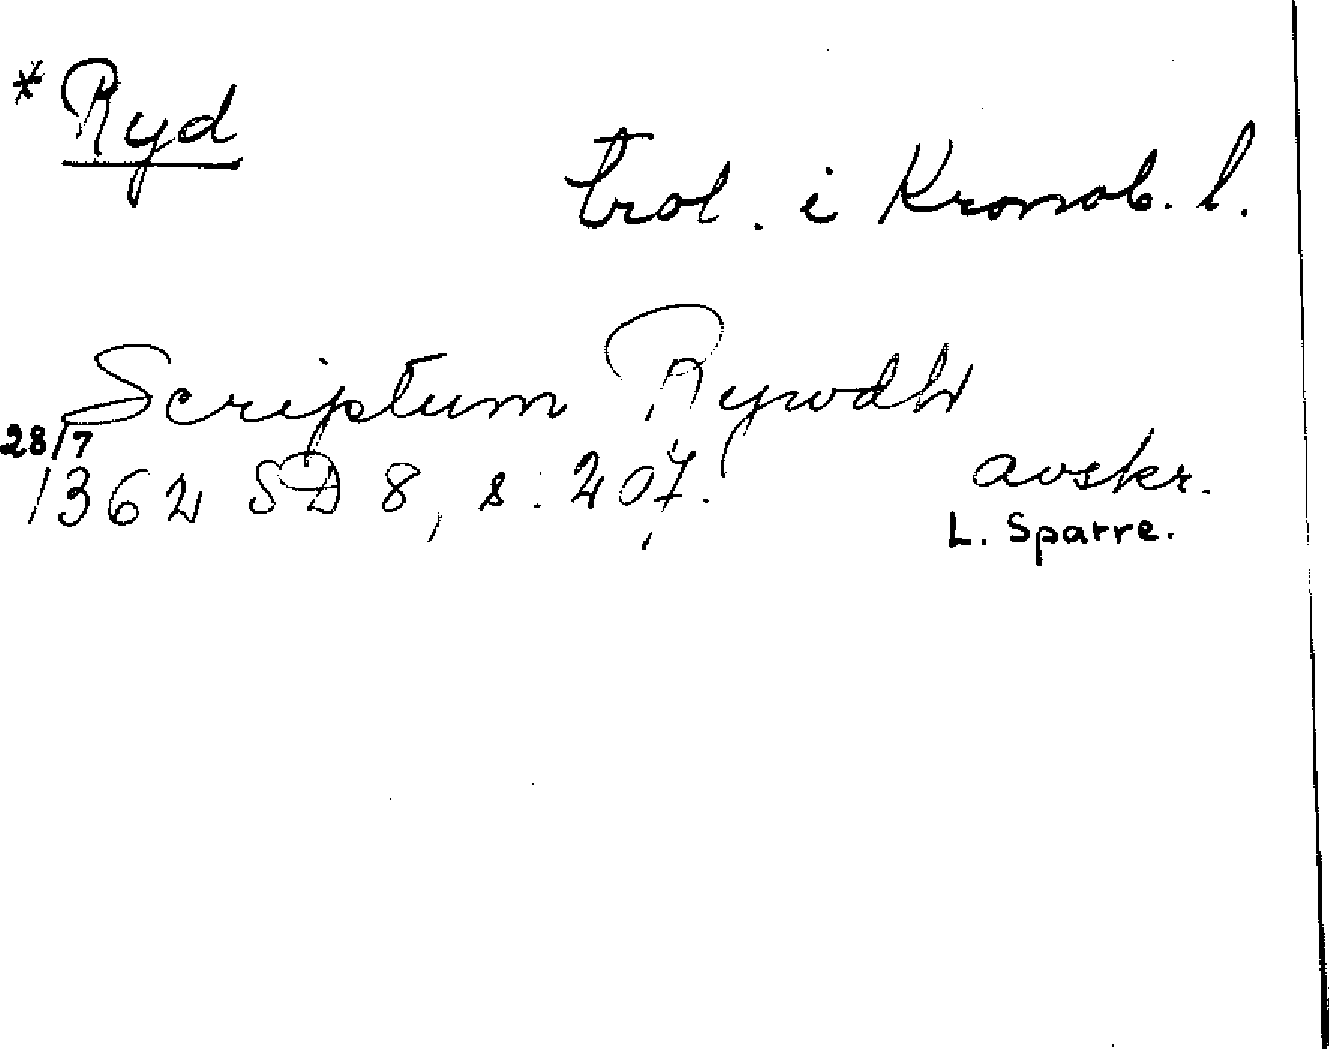 * Ryd
trol. i Kronob. l.
Scriptum Rywdh
28/7
1362 SD 8, s. 207.
avskr.
L. Sparre.